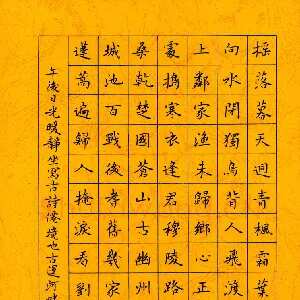 搖落暮天迥青楓霜葉
向水閉獨鳥背人飛渡
上鄰家漁未歸鄉心正
處搗寒衣逢君穆陵路
桑乾楚國蒼山古幽州
城池百戰後耆舊幾家
蓬蒿遍歸人掩淚看劉
午後日光暖靜坐寫古詩境也古運河